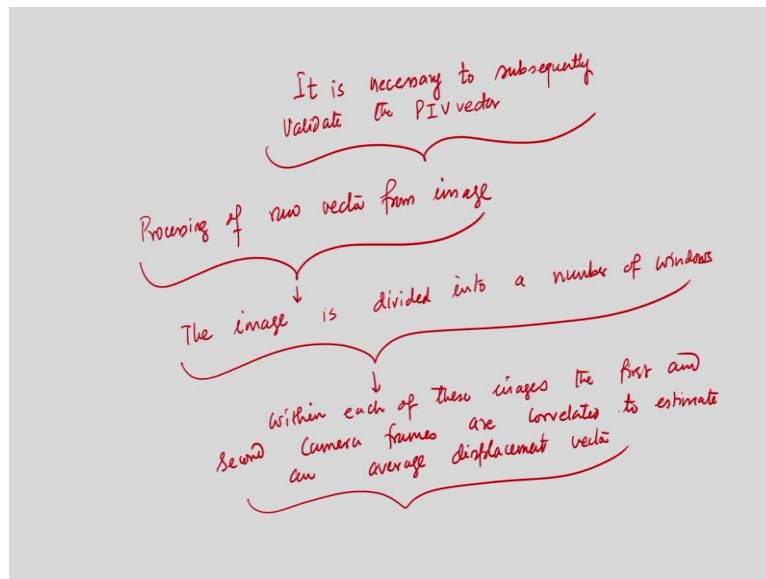 It is necessary to subsequently
Validate the PIV vector
Processing of raw vector from image
The image is divided into a number of windows
Within each of these images the first and
Second Camera frames are correlated to estimate
an average displacement vector